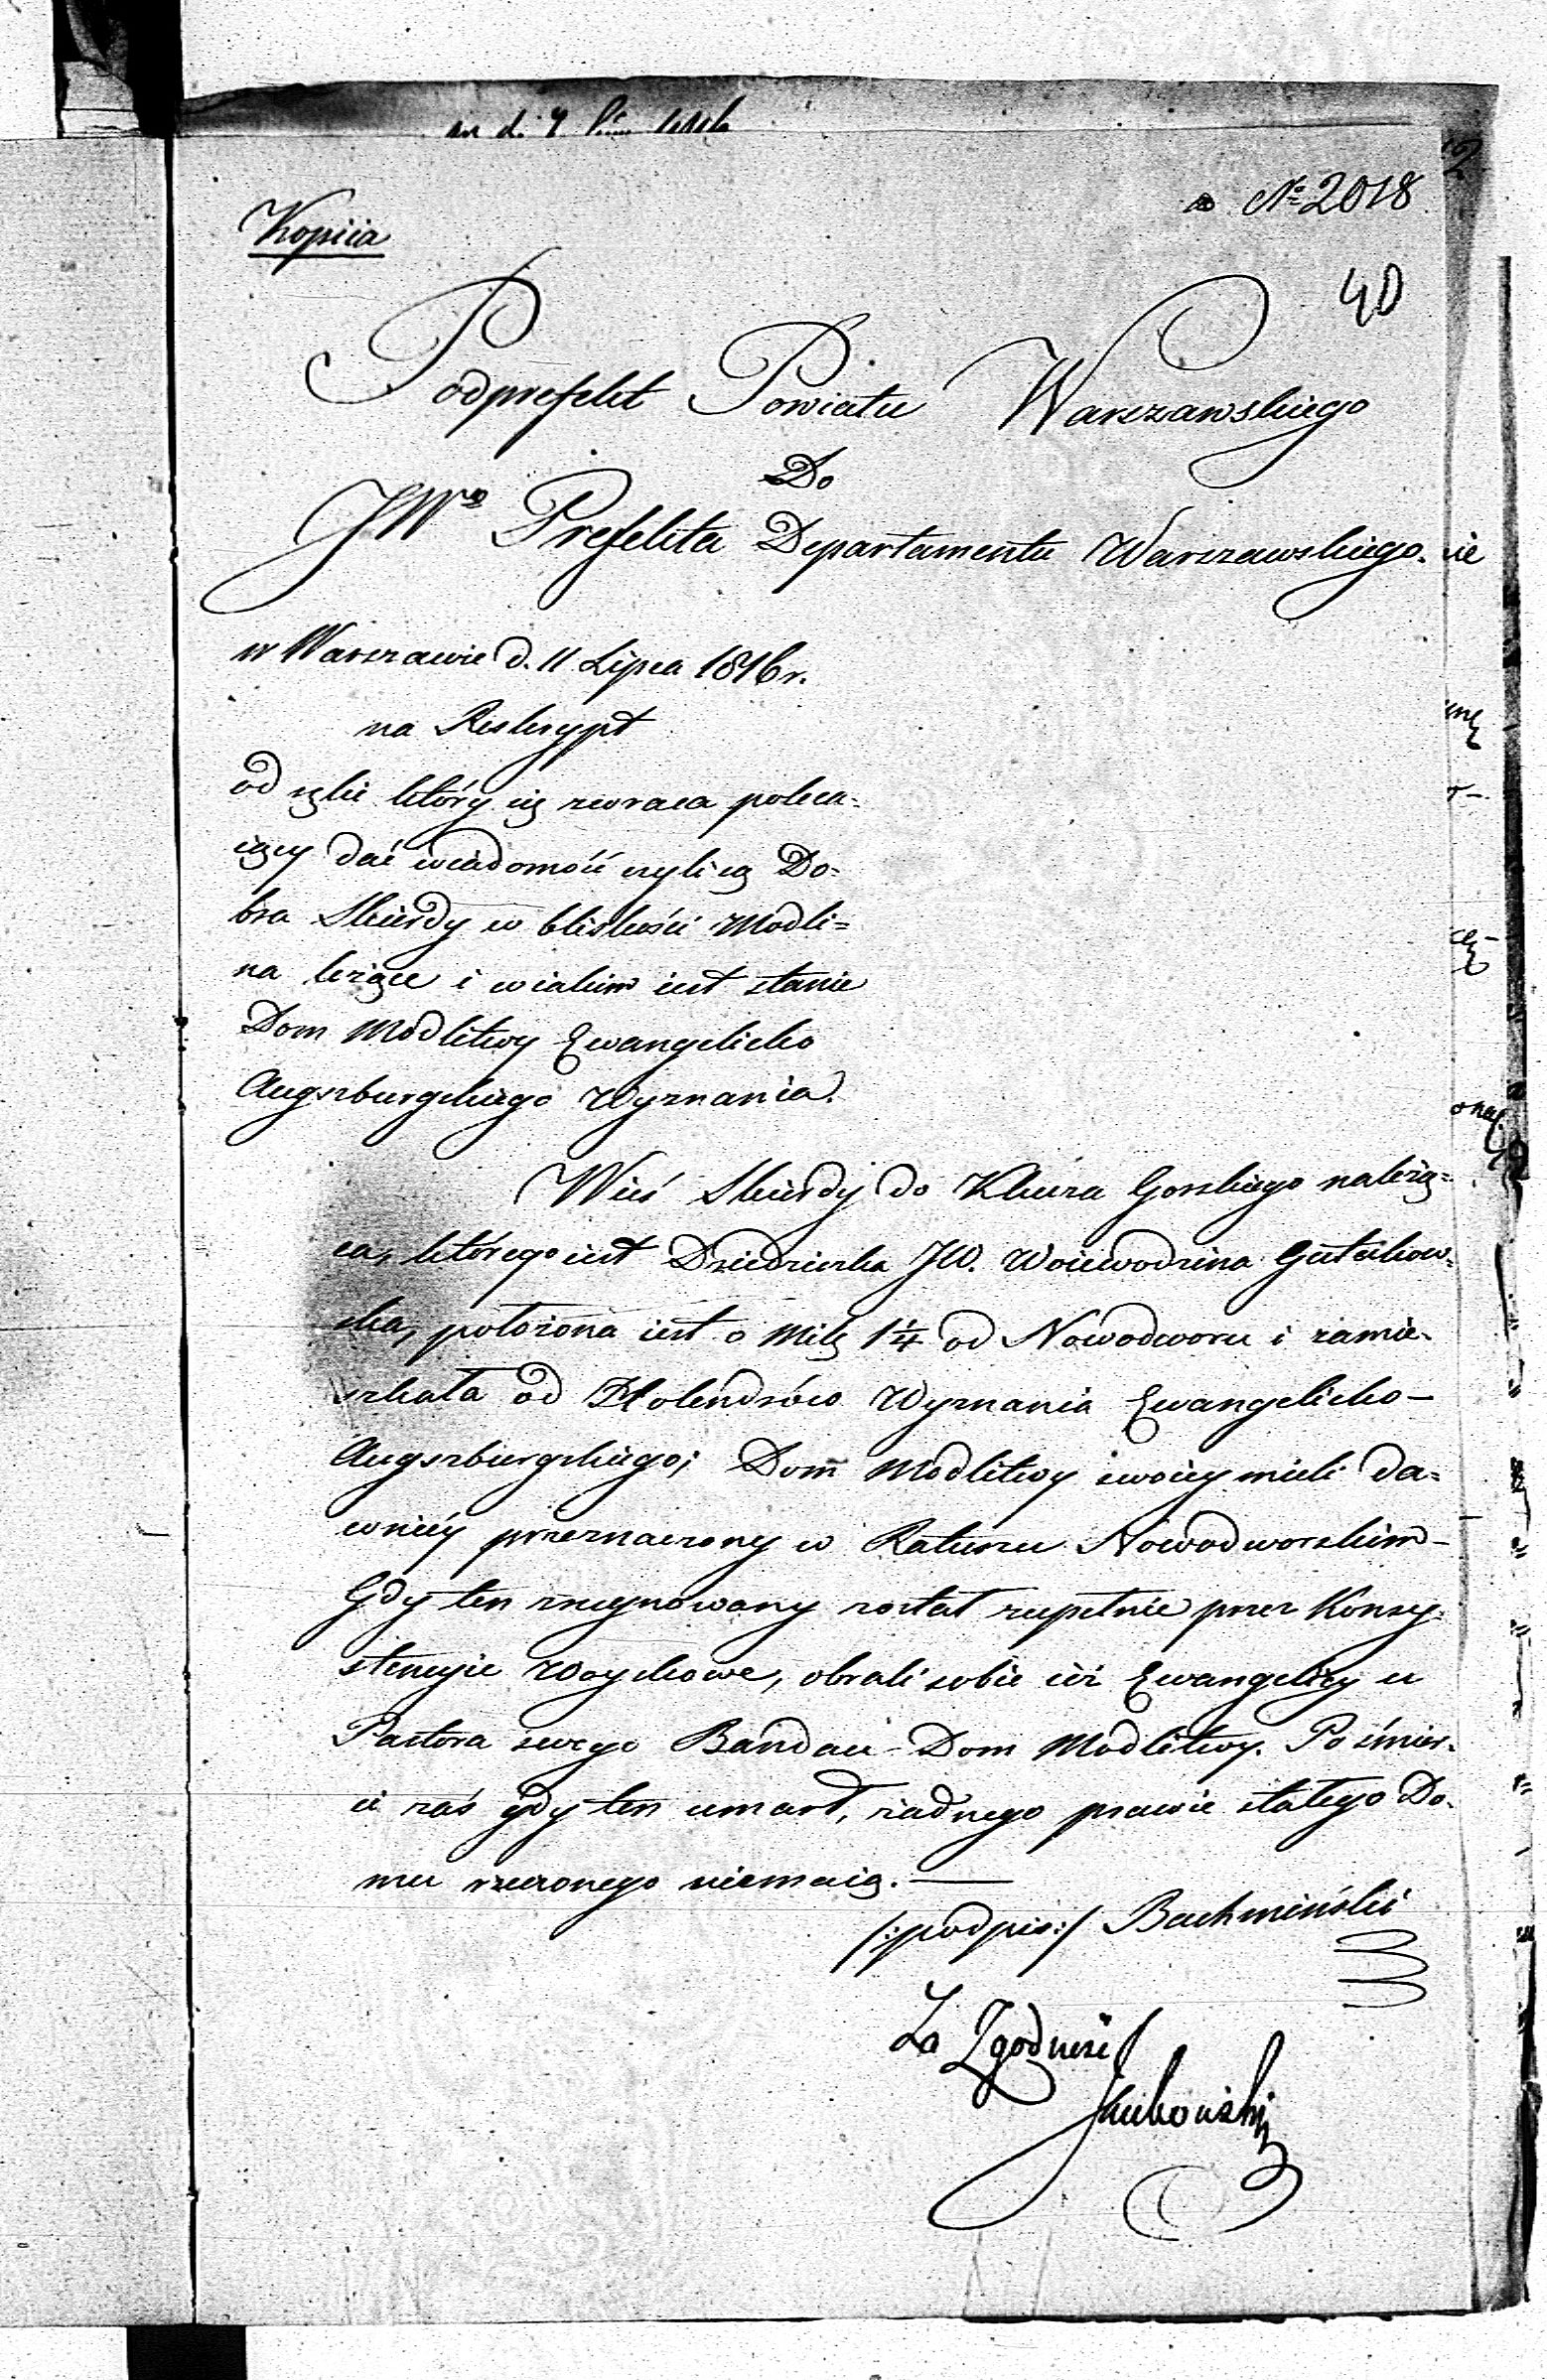 Kopiia
№ 2018
40
Podprefekt Powiatu Warszawskiego
Do
JWo Prefekta Departamentu Warszawskiego.
w Warszawie d. 11 Lipca 1816 r.
na Reskrypt
który się zwraca poleca=
iący dać wiadomość czyli są Do=
bra Skierdy w bliskości Modli=
na leżące i w iakim iest stanie
Dom Modlitwy Ewangelicko
Augszburgskiego Wyznania.
Wieś Skierdy do Klucza Gorskiego należą=
ca, którego iest Dziedziczka JW. Woiewodzina Gutakow=
ska, położona iest o Milę 1¼ od Nowodworu i zamie=
szkała od Holendrów Wyznania Ewangelicko–
Augszburgskiego; Dom Modlitwy swoiey mieli da=
wniéy przeznaczony w Ratuszu Nowodworskim–
Gdy ten zruynowany został zupełnie przez Konsy=
stencyie Woyskowe, obrali sobie ciż Ewangelicy u
Pastora swego Bandau Dom Modlitwy. Po śmier=
ci zaś gdy ten umarł, żadnego prawie stałego Do=
mu rzeczonego niemaią.
/:podpis:/ Bachmiński
Za Zgodność